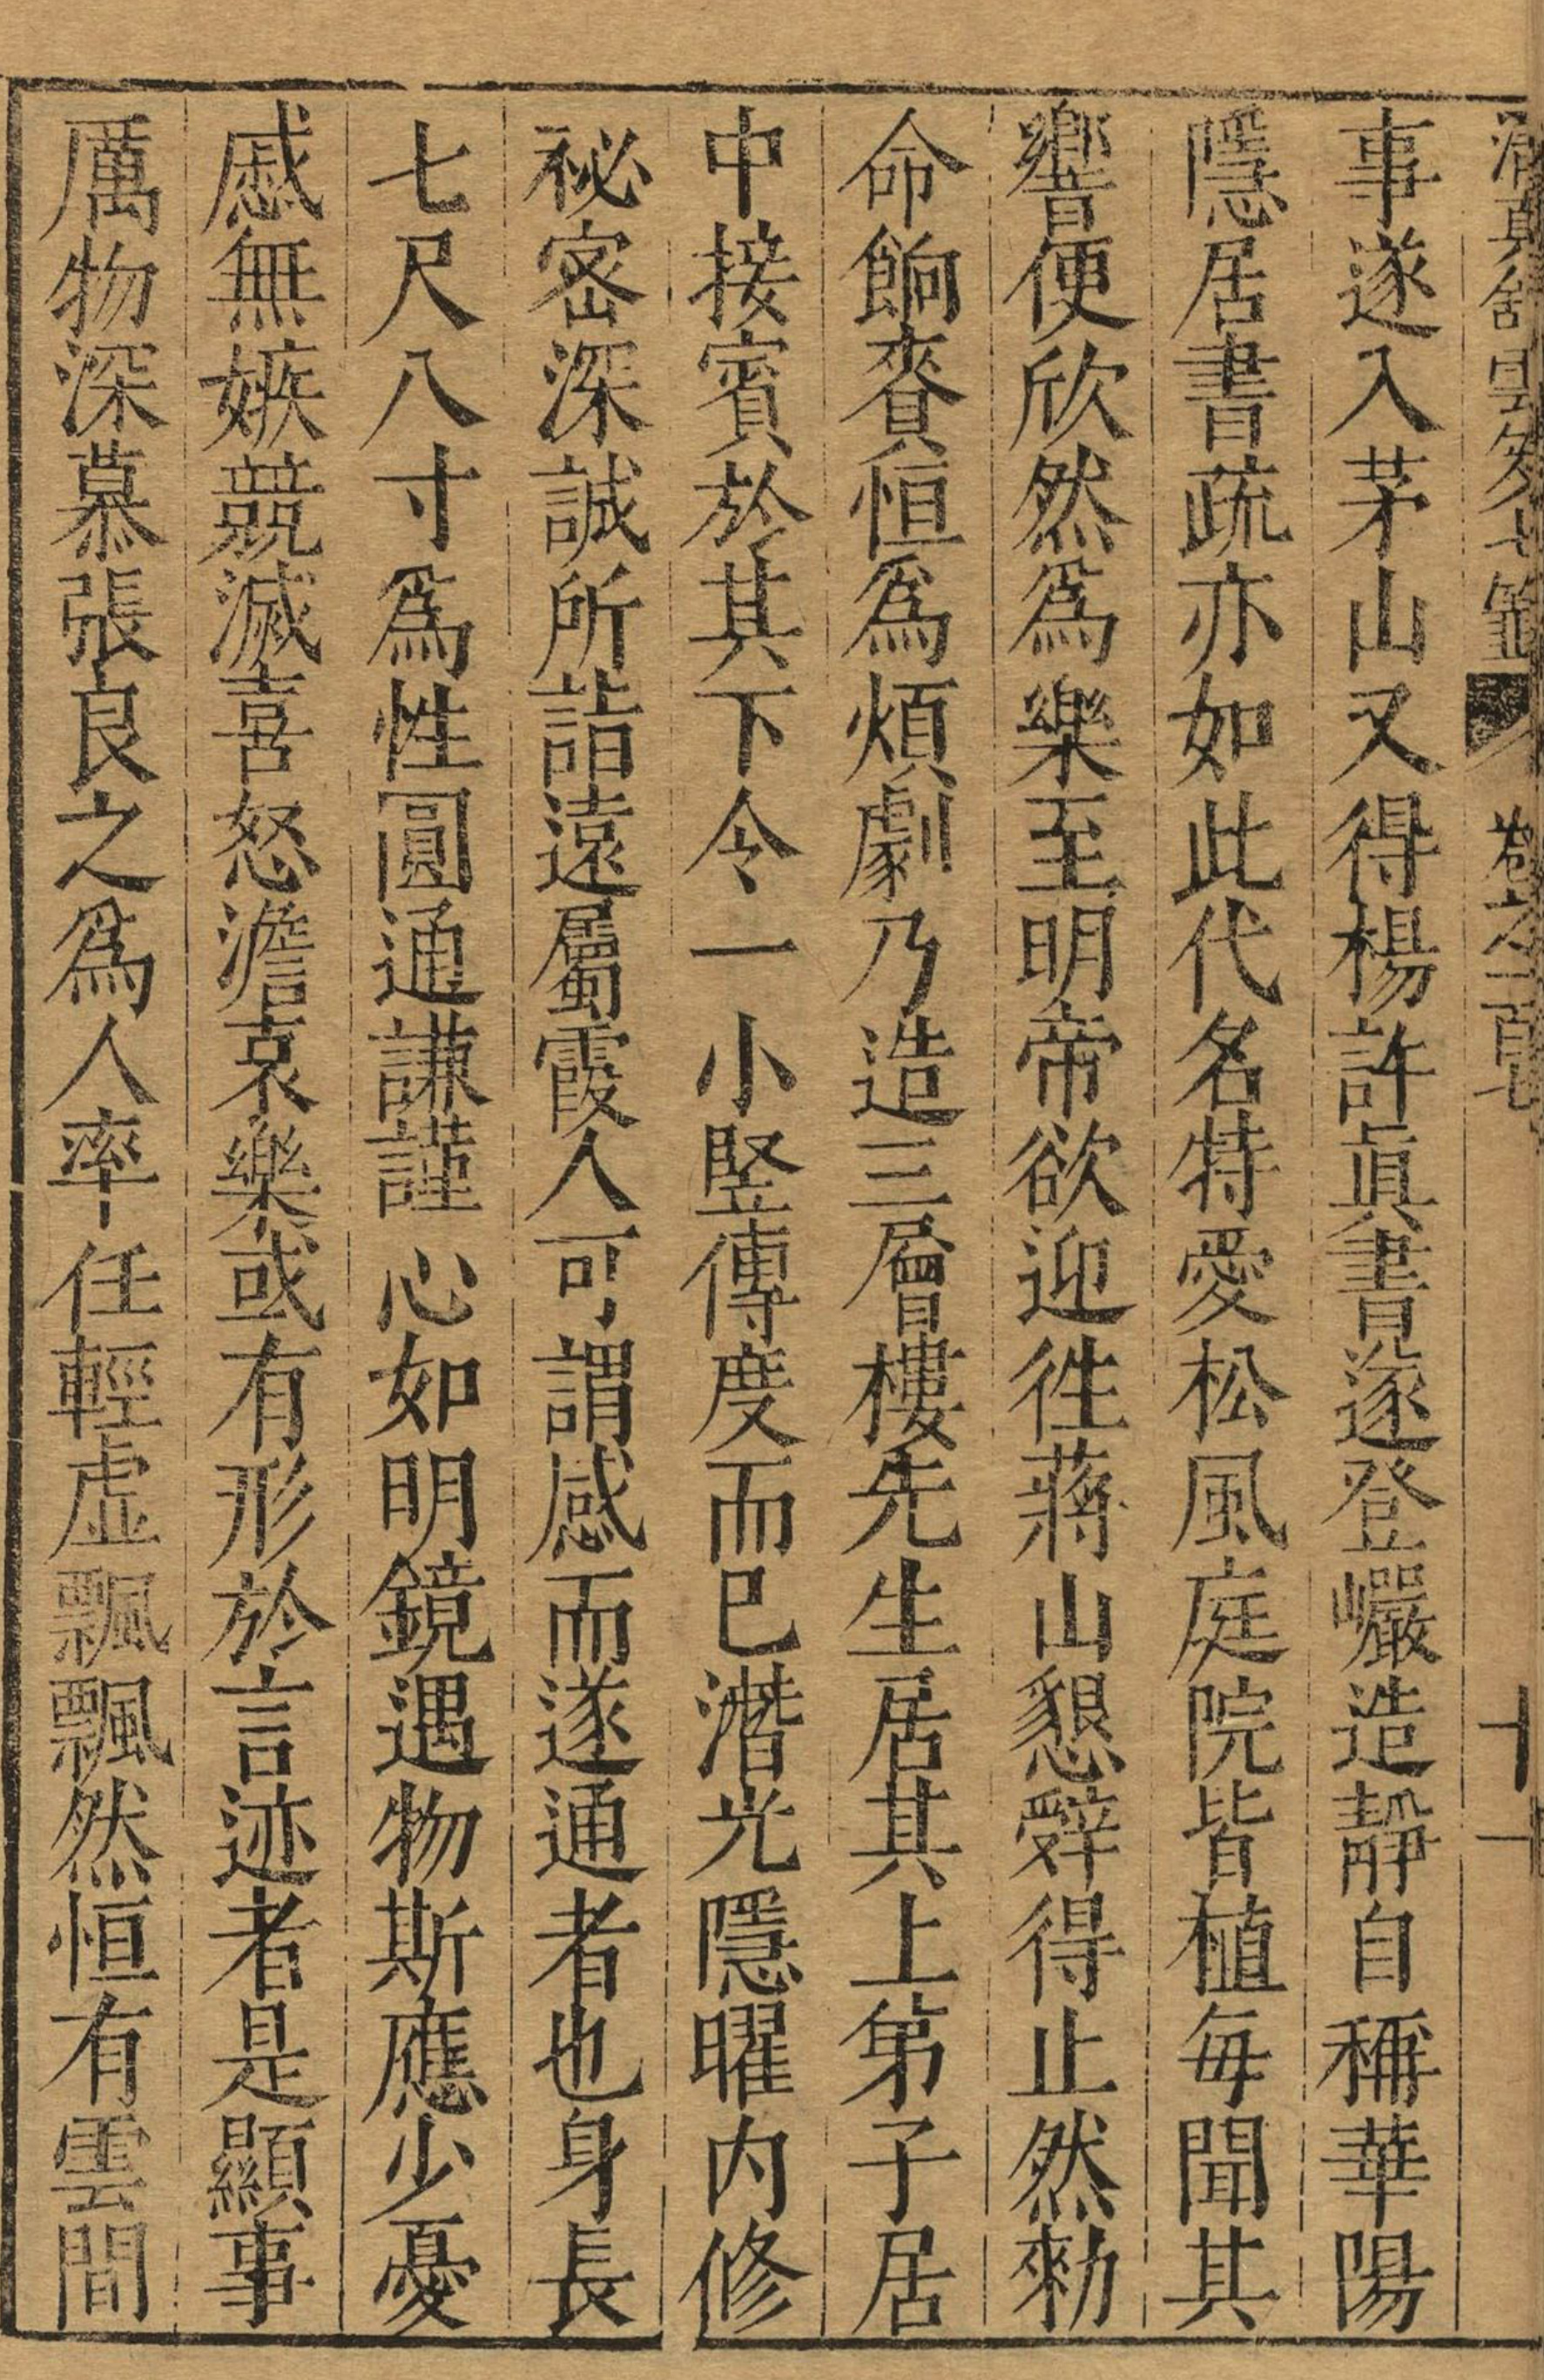 清真館雲笈七籤 卷之一百七 十一
事遂入茅山又得楊許眞書遂登巗造靜自稱華陽
隱居書疏亦如此代名特愛松風庭院皆植每聞其
響便欣然爲樂至明帝欲迎徃蔣山懇辭得止然勑
命餉賚恒爲煩劇乃造三層樓先生居其上弟子居
中接賓於其下令一小竪傳度而已潛光隱曜内修
祕密深誠所詣遠屬霞人可謂感而遂通者也身長
七尺八寸爲性圓通謙謹心如明鏡遇物斯應少憂
戚無嫉競滅喜怒澹哀樂或有形於言迹者是顯事
厲物深慕張良之爲人率任輕虛飄飄然恒有雲間